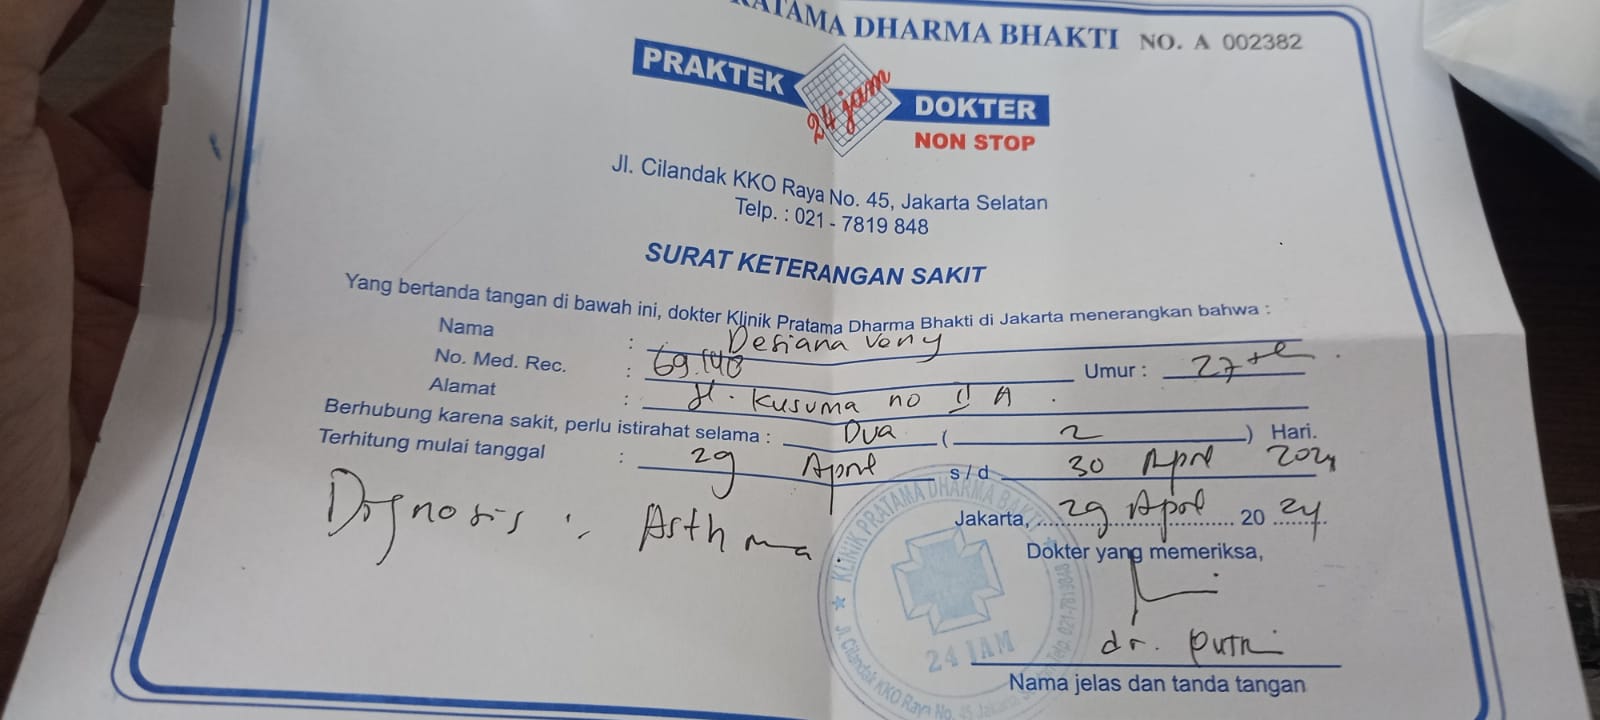 PRATAMA DHARMA BHAKTI NO. A 002382
PRAKTEK 24 jam DOKTER
NON STOP
Jl. Cilandak KKO Raya No. 45, Jakarta Selatan
Telp. : 021 - 7819 848
SURAT KETERANGAN SAKIT
Yang bertanda tangan di bawah ini, dokter Klinik Pratama Dharma Bhakti di Jakarta menerangkan bahwa :
Nama : Desiana Veny
No. Med. Rec. : 69.140 Umur : 27 th
Alamat : Jl. Kusuma no II A
Berhubung karena sakit, perlu istirahat selama : Dua ( 2 ) Hari.
Terhitung mulai tanggal : 29 April s/d 30 April 2024
Jakarta, 29 April 20 24
Diagnosis : Asthma
Dokter yang memeriksa,
dr. Putri
Nama jelas dan tanda tangan
KLINIK PRATAMA DHARMA BAKTI
24 JAM
Jl. Cilandak KKO Raya No. 45 Jakarta Telp. 021-7819848